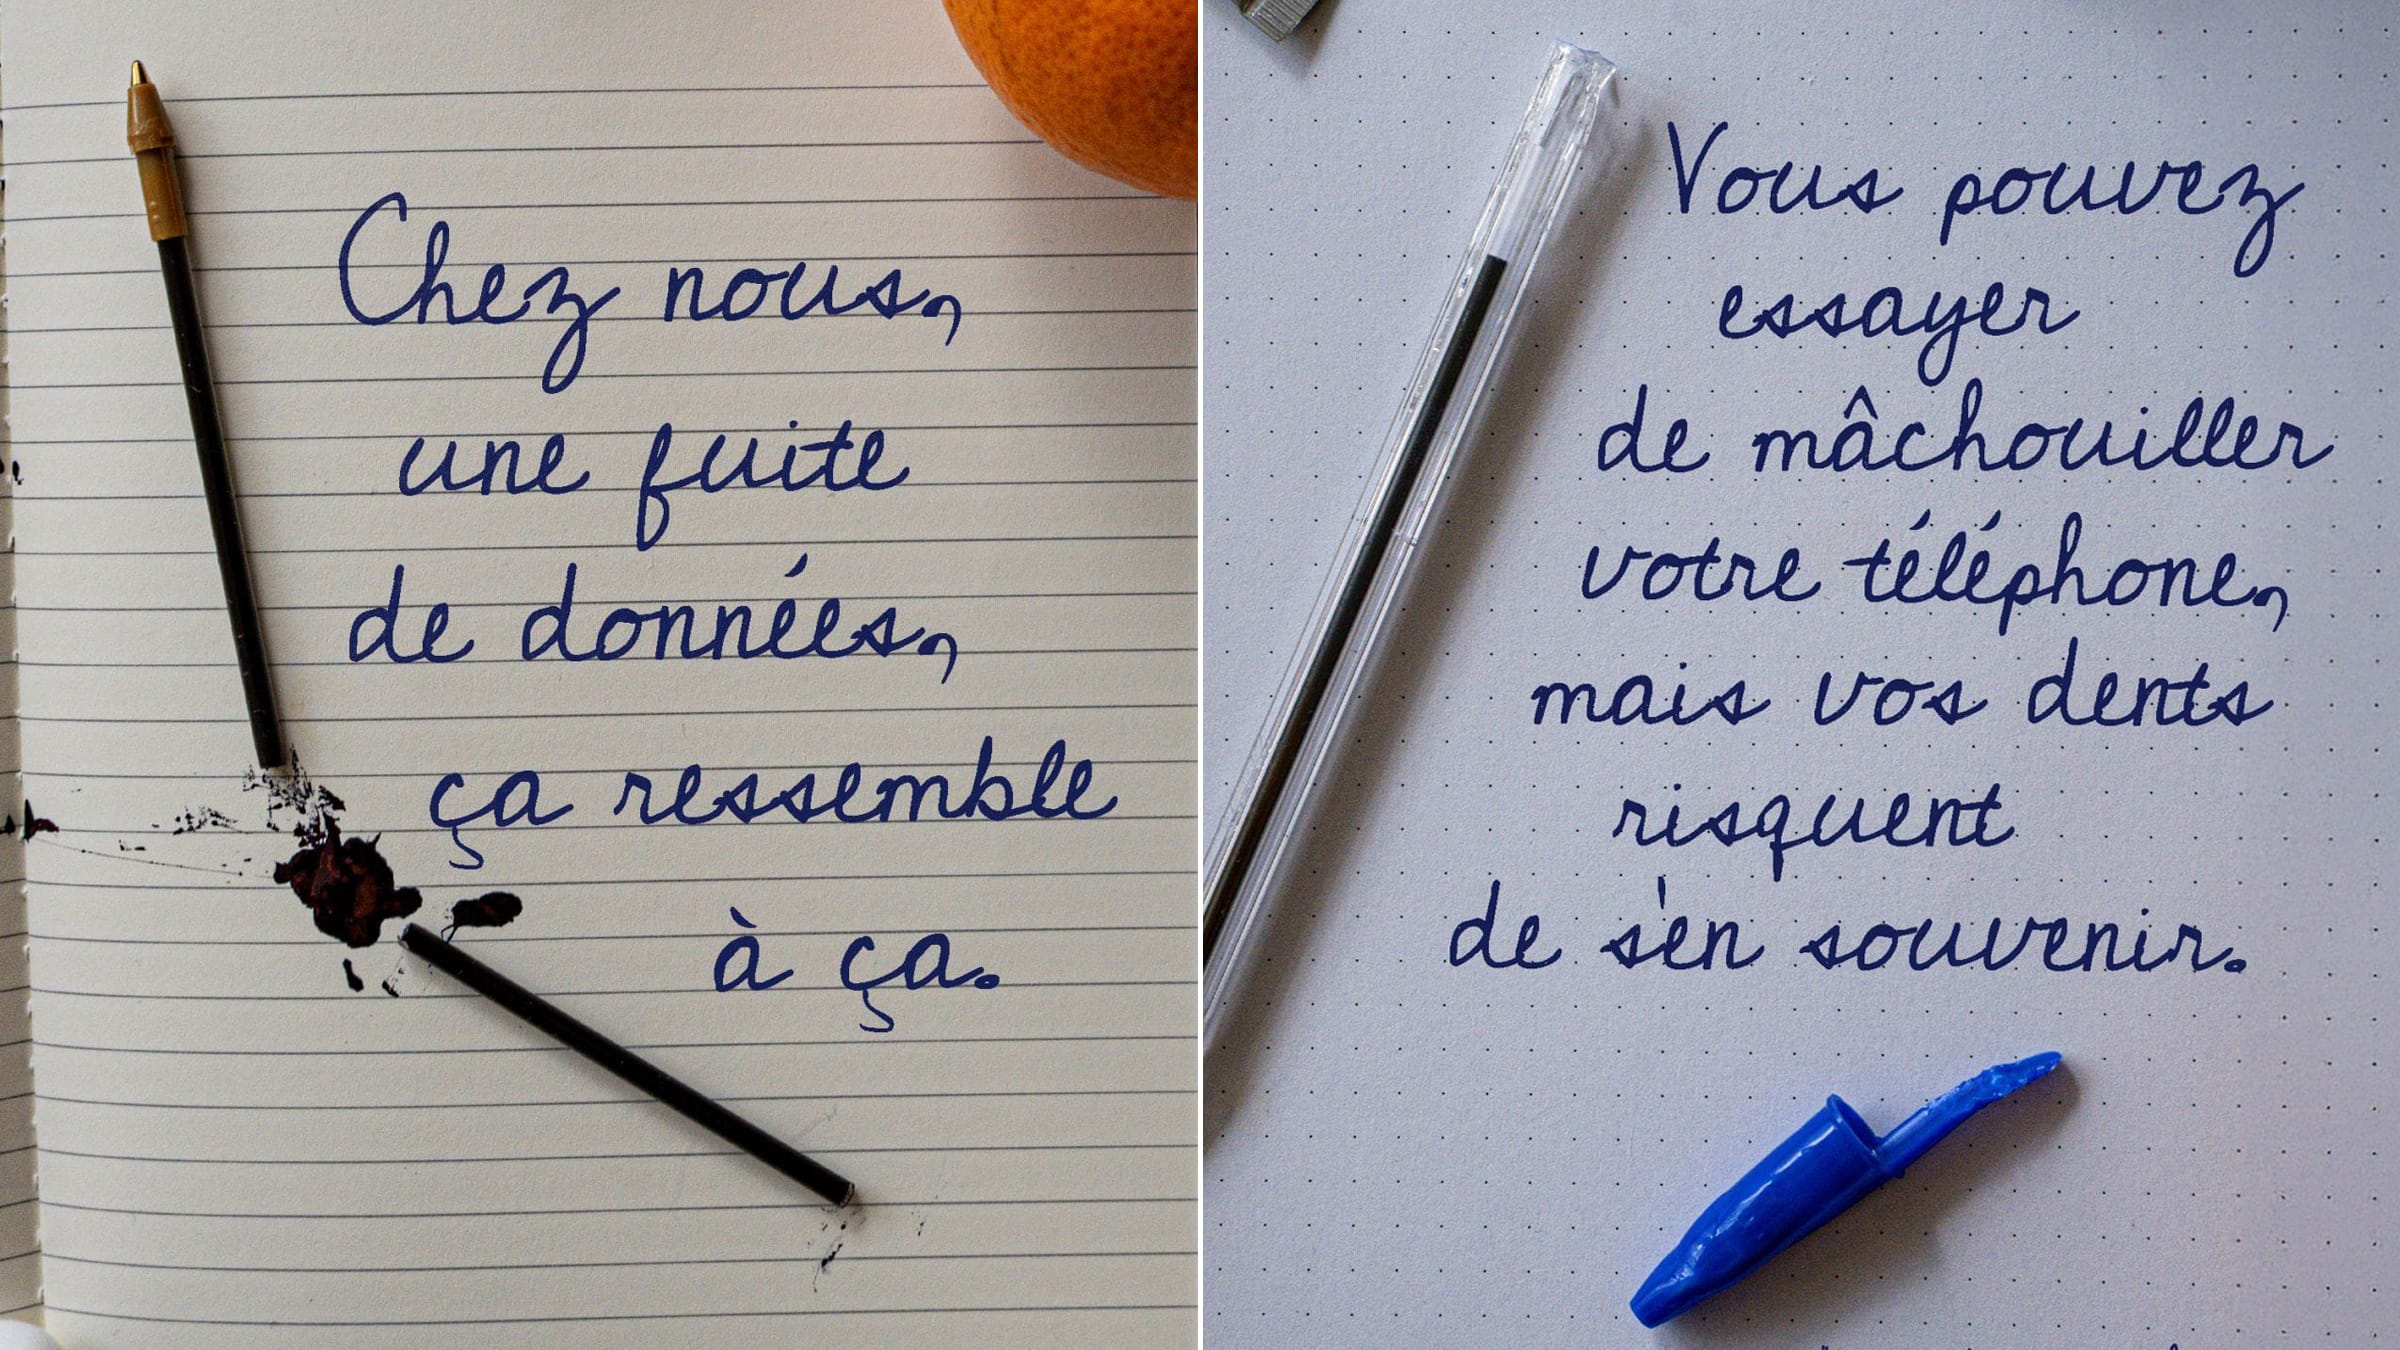 Chez nous,
une fuite
de données,
ça ressemble
à ça.
Vous pouvez
essayer
de mâchouiller
votre téléphone,
mais vos dents
risquent
de s'en souvenir.